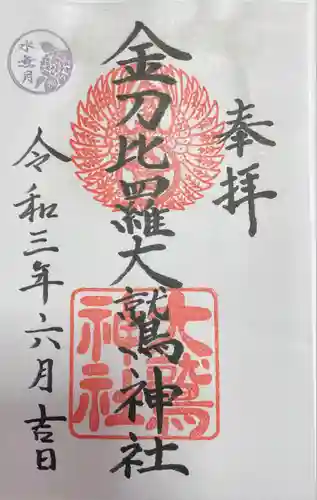 奉拝
金刀比羅大鷲神社
大鷲
神社
令和三年六月吉日
水無月